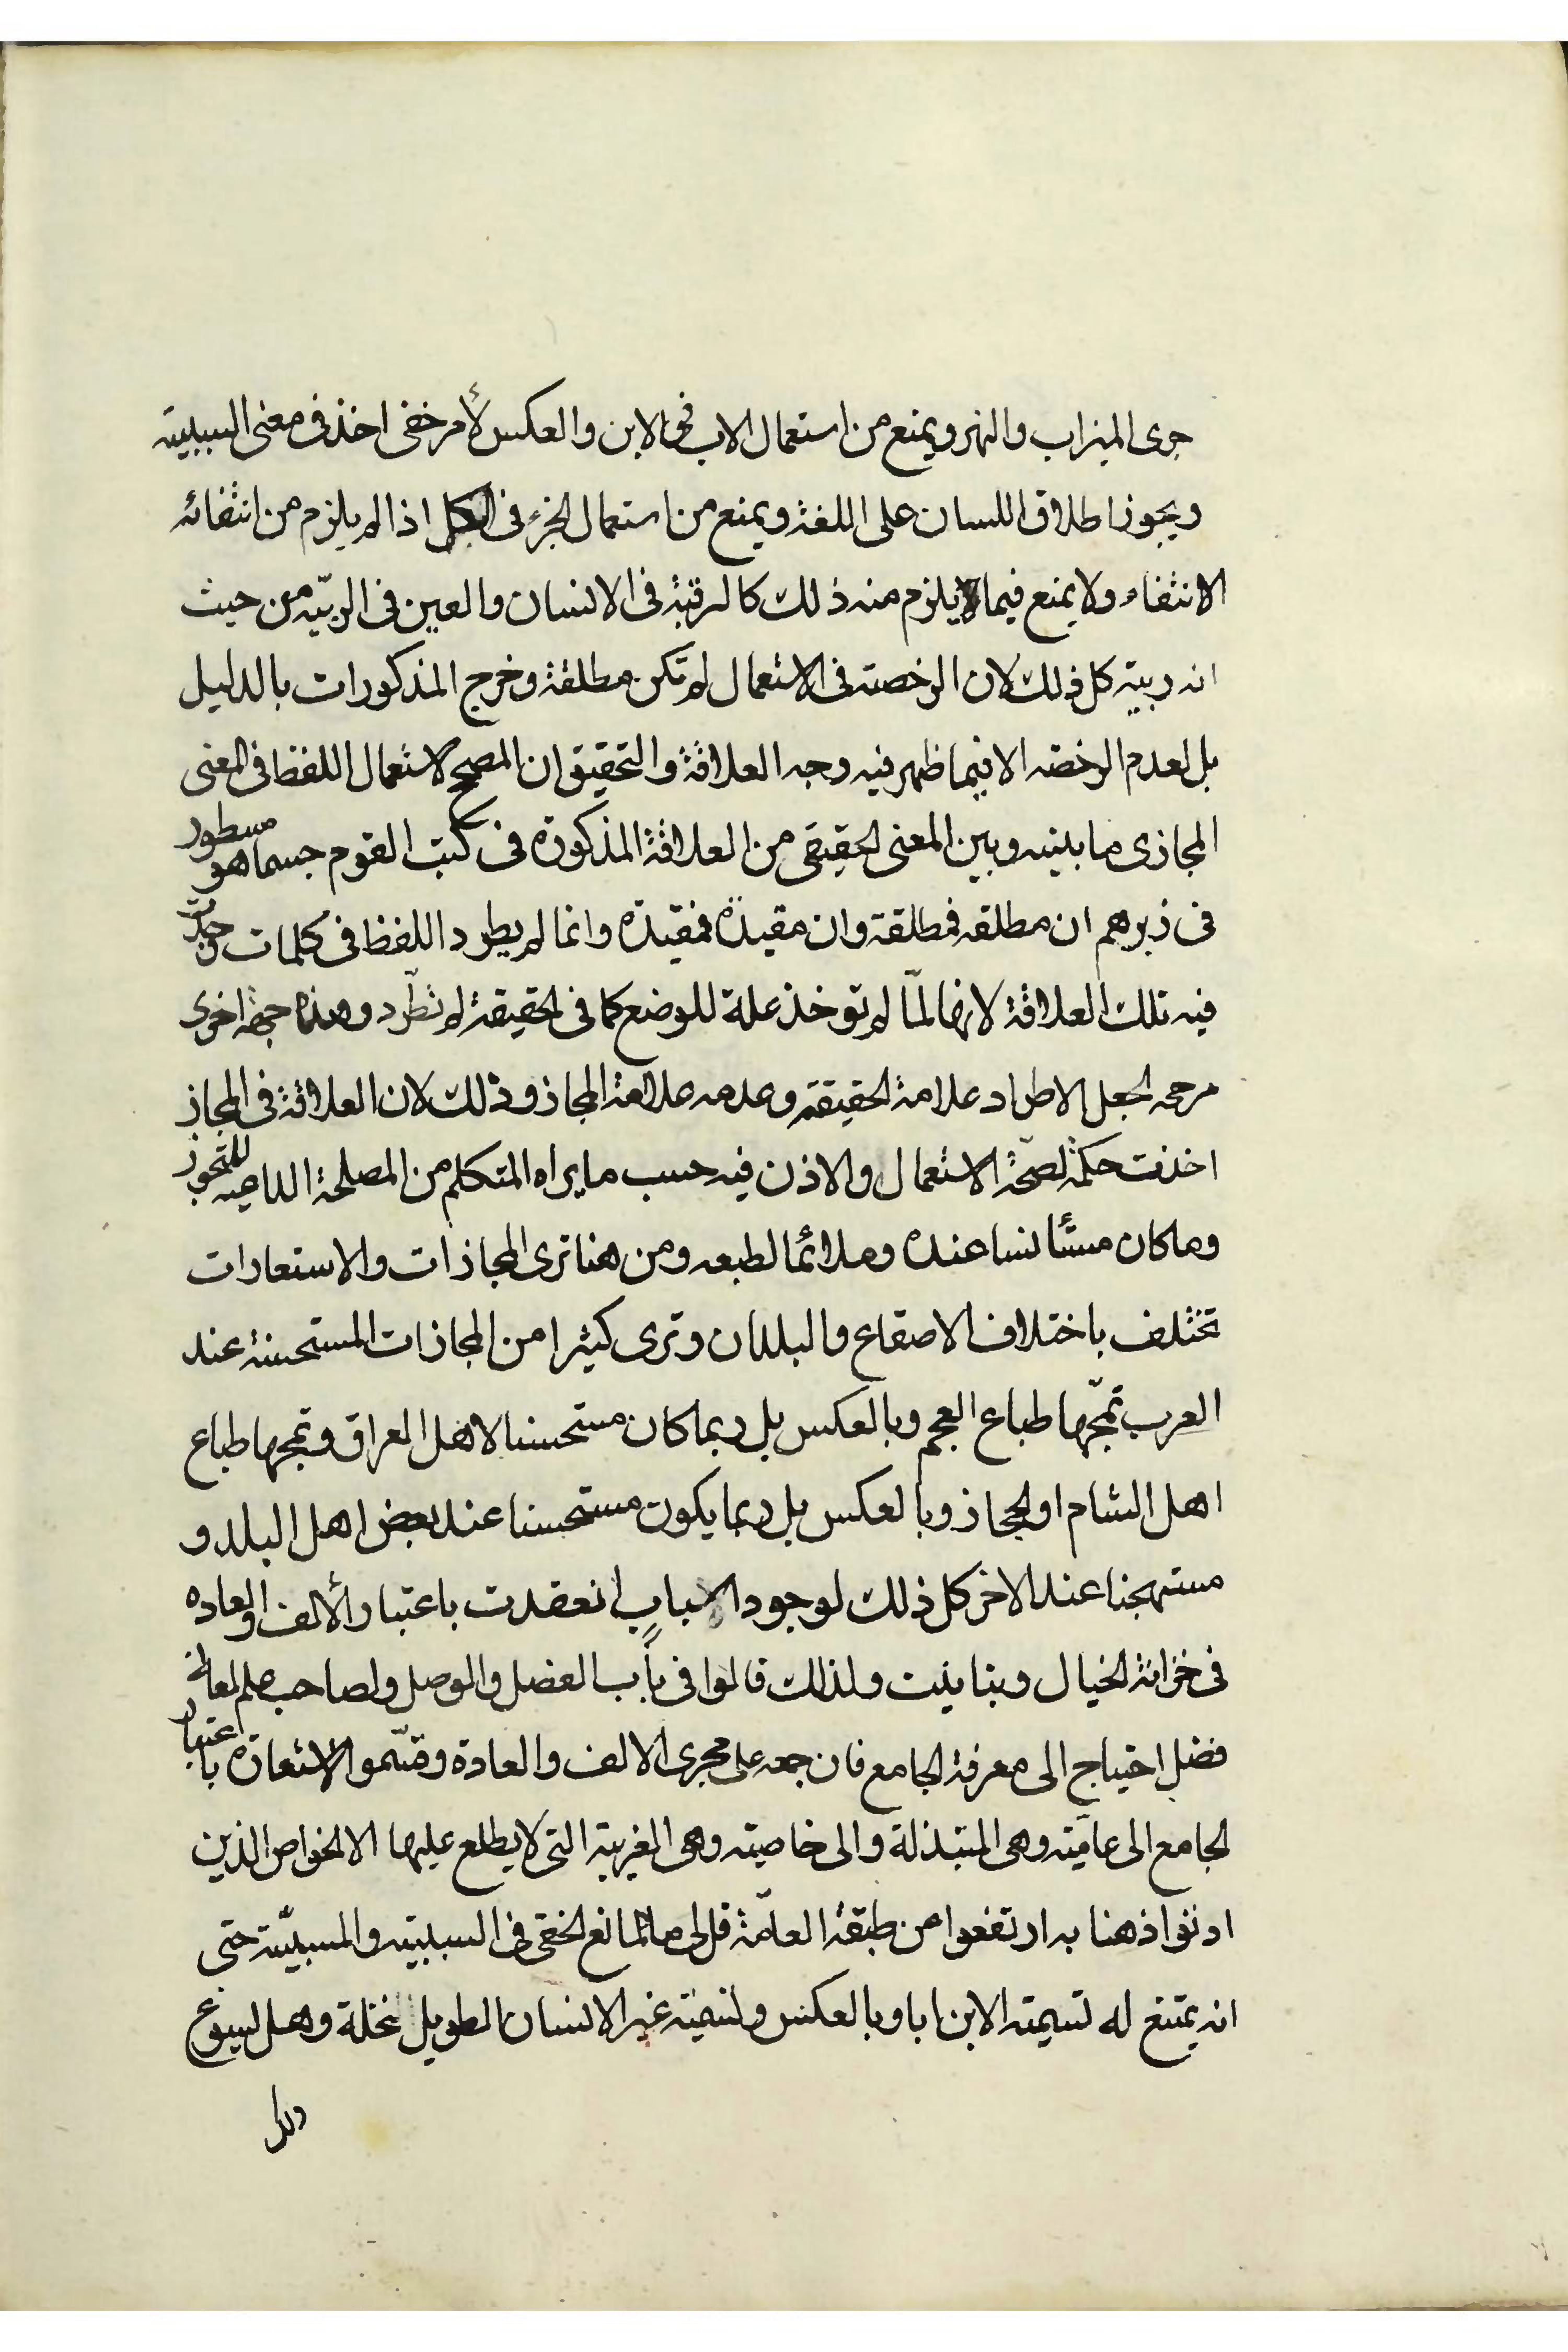 جرى الميزاب والنهر ويمنع من استعمال الاب فى الابن والعكس لأمر خفى اخذ فى معنى السببيته
ويجوز اطلاق اللسان على اللغة ويمنع من استعمال الجزء فى الكل اذا لم يلزم من انتفائه
الانتفاء ولا يمنع فيما يلزم منه ذلك كالرقبة فى الانسان والعين فى الربيّه من حيث
انه ربيته كل ذلك لان الرخصته فى الاستعمال لم تكن مطلقة وخرج المذكورات بالدليل
بل لعدم الرخصه الا فيما ظهر فيه وجه العلاقة والتحقيق ان المصحح لاستعمال اللفظ فى المعنى
المجازى ما بينه وبين المعنى الحقيقى من العلاقة المذكورة فى كتب القوم حسبما هو مسطور
فى زبرهم ان مطلقه فمطلقة وان مقيدة فمقيدة وانما لم يطرد اللفظ فى كلمات وجدت
فيه تلك العلاقة لانها لمّا لم توخذ علة للوضع كما فى الحقيقة لم تطّرد وهذه جهة اخرى
مرحجه لجعل الاطراد علامة الحقيقه وعدمه علامة المجاز وذلك لان العلاقة فى المجاز
اخذت حكمة لصحّة الاستعمال والاذن فيه حسب ما يراه المتكلم من المصلحة الداعيه للتجوز
وما كان مستأنسا عنده وملائما لطبعه ومن هنا ترى المجازات والاستعارات
تختلف باختلاف الاصقاع والبلدان وترى كثيرا من المجازات المستحسنة عند
العرب تمجّها طباع العجم وبالعكس بل ربما كان مستحسنا لاهل العراق وتمجها طباع
اهل الشام او الحجاز وبالعكس بل ربما يكون مستحسنا عند بعض اهل البلد و
مستهجنا عند الاخر كل ذلك لوجود اسباب انعقدت باعتبار الألف والعاده
فى خزانة الخيال وتباينت ولذلك قالوا فى باب الفصل والوصل ولصاحب علم المعانى
فضل احتياج الى معرفة الجامع فان جمعه على مجرى الالف والعادة وقسّموا الاستعارة باعتبار
الجامع الى عاميّته وهى المبتذلة والى خاصيته وهى الغريبة التى لا يطلع عليها الا الخواص الذين
اوتوا ذهنا به ارتفعوا من طبقة العامّة قل لى ما المانع الخفى فى السببيته والمسببيّة حتى
انه يمتنع له تسيمته الابن ابا وبالعكس وتسميته غير الانسان الطويل نخلة وهل يسوغ